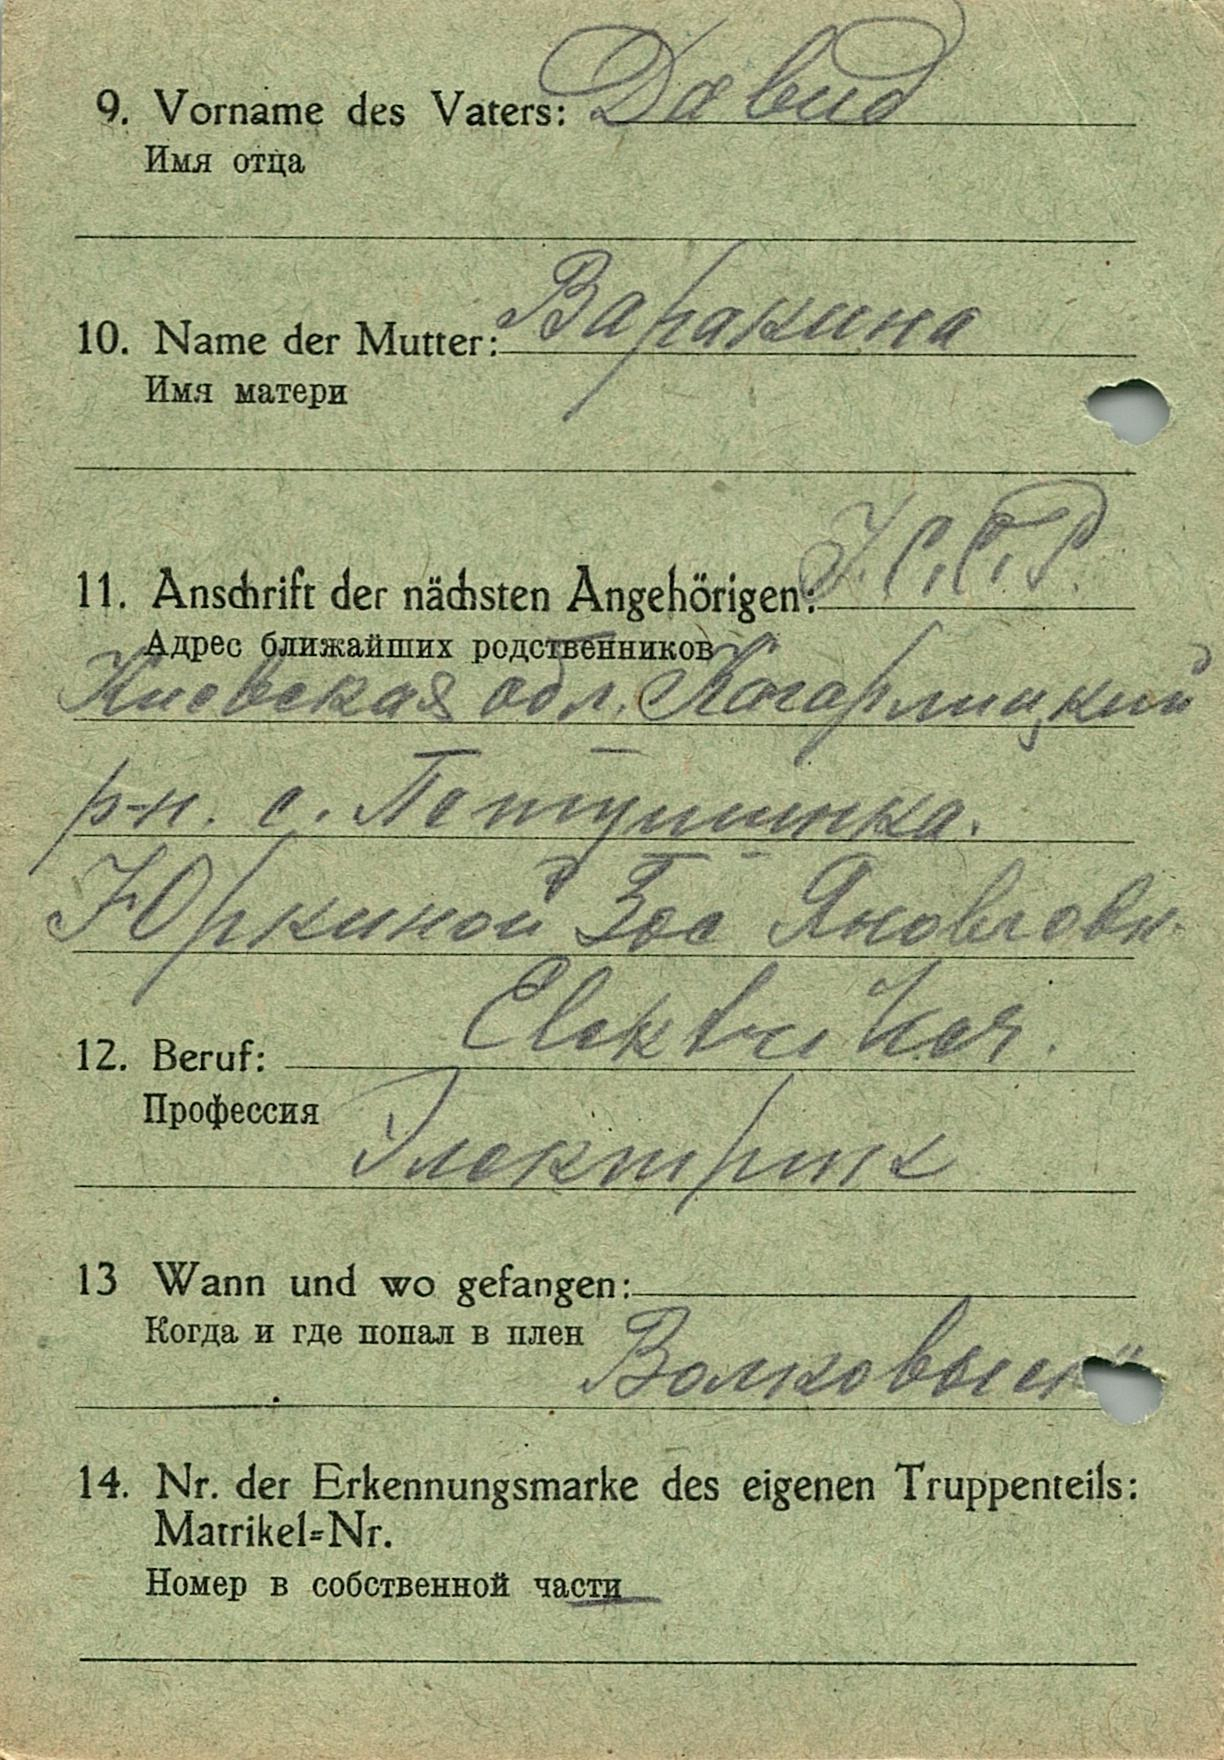 9. Vorname des Vaters: Давид
Имя отца
10. Name der Mutter: Варакина
Имя матери
11. Anschrift der nächsten Angehörigen: У.С.С.Р.
Адрес ближайших родственников
Киевская обл. Кагарлицкий
р-н. с.
Юркиной Зое Яковловн.
12. Beruf: Elektriker.
Профессия
Электрик
13 Wann und wo gefangen:
Когда и где попал в плен
Волковыск
14. Nr. der Erkennungsmarke des eigenen Truppenteils:
Matrikel=Nr.
Номер в собственной части